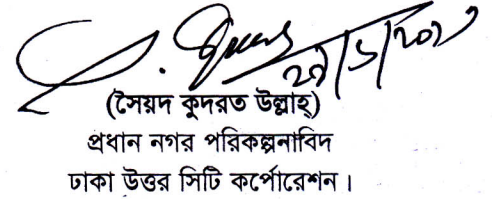 (সৈয়দ কুদরত উল্লাহ)
প্রধান নগর পরিকল্পনাবিদ
ঢাকা উত্তর সিটি কর্পোরেশন।